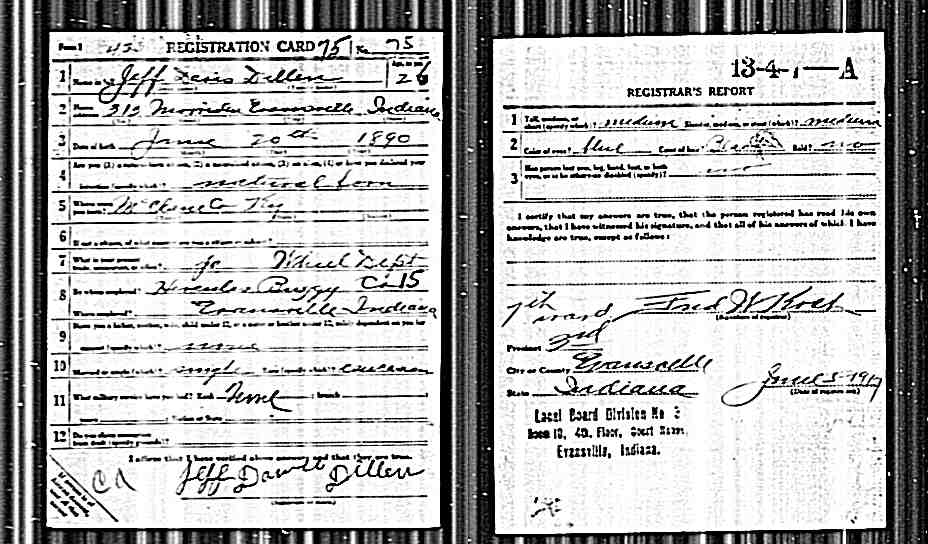 Form 1 REGISTRATION CARD 75 No. 75
1 Jeff Davis Dillen Age, in yrs. 26
2 313 Evansville Indiana
3 Date of birth June 20th 1890
4 Are you (1) a natural born citizen, (2) a naturalized citizen, (3) an alien, (4) or have you declared your
intention (specify which)? natural born
5 Where were you born? Ky
6 If not a citizen, of what country are you a citizen or subject?
7 What is your present trade, occupation, or office? Wheel Dept
8 By whom employed? Hercules Buggy Co 15
Where employed? Evansville Indiana
9 Have you a father, mother, wife, child under 12, or a sister or brother under 12, solely dependent on you for
support (specify which)? none
10 Married or single (which)? single Race (specify which)? Caucasian
11 What military service have you had? Rank None branch
years Nation or State
12 Do you claim exemption from draft (specify grounds)?
I affirm that I have verified above answers and that they are true.
Jeff Davis Dillen
13-4-1—A
REGISTRAR'S REPORT
1 Tall, medium, or short (specify which)? medium Slender, medium, or stout (which)? medium
2 Color of eyes? blue Color of hair? Bald? no
3 Has person lost arm, leg, hand, foot, or both eyes, or is he otherwise disabled (specify)? no
I certify that my answers are true, that the person registered has read his own
answers, that I have witnessed his signature, and that all of his answers of which I have
knowledge are true, except as follows:
7th ward Fred W
(Signature of registrar)
Precinct 3rd
City or County Evansville
State Indiana June 5-1917
(Date of registration)
Local Board Division No 2
Room 10, 4th. Floor, Court House.
Evansville, Indiana.